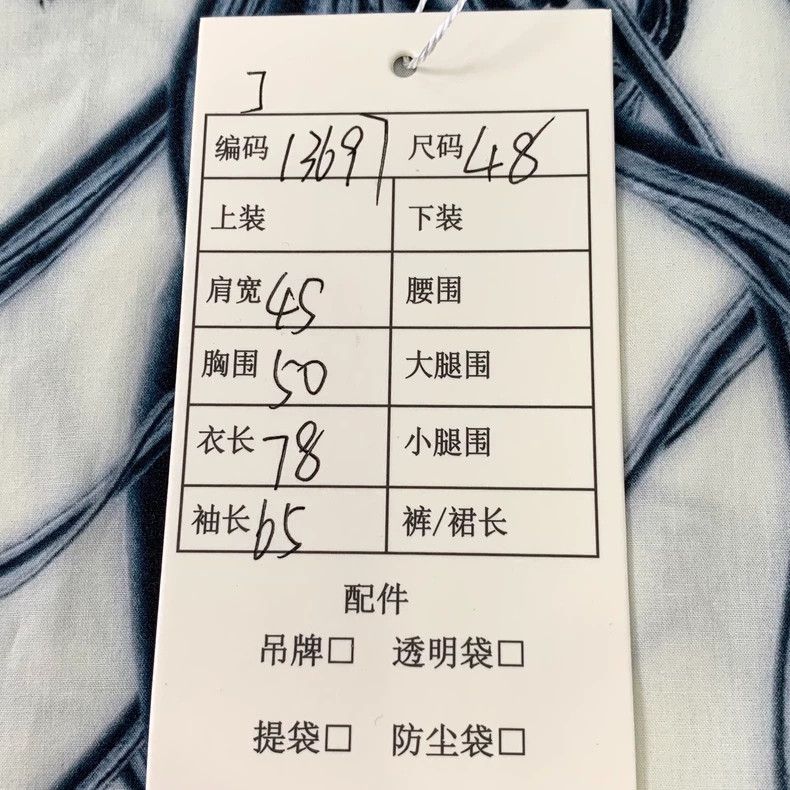 编码 13697 尺码 48
上装 下装
肩宽 45 腰围
胸围 50 大腿围
衣长 78 小腿围
袖长 65 裤/裙长
配件
吊牌□ 透明袋□
提袋□ 防尘袋□